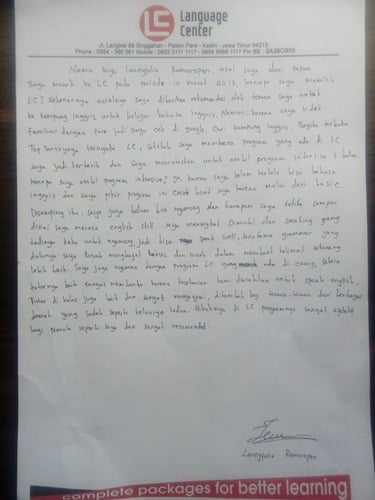 LC
Language
Center
Jl. Langkat 88 Singgahan - Pelem Pare - Kediri - Jawa Timur 64213
Nama saya Laneyfolia Rumaropen, asal saya dari papua.
Saya masuk ke LC pada periode 10 maret 2017, kenapa saya memilih
LC? Sebenarnya awalnya saya diberitau rekomendasi oleh teman saya untuk
ke kampung inggris untuk belajar bahasa Inggris. Namun, karena saya tidak
familiar dengan pare jadi saya cek di google, Cari kampung Inggris. Begitu terbuka
Top Surveynya ternyata LC, Setelah saya membaca program yang ada di LC
saya jadi tertarik dan saya memutuskan untuk ambil program intensive 3 bulan.
Kenapa saya ambil program intensive? ya, karena saya belum terlalu bisa bahasa
inggris dan saya pikir program ini cocok buat saya karena mulai dari basic.
Disamping itu, saya juga belum bisa ngomong dan harapan saya ketika sampai
disini saya merasa english skill saya meningkat. Dimulai dari speaking yang
tadinya kaku untuk ngomong, jadi bisa speak well, terutama grammar yang
dulunya saya susah menghafal tenses dan susah dalam membuat kalimat sekarang
lebih baik. Saya juga nyaman dengan program LC yang ada di camp, selain
tutornya baik sangat membantu karena keseharian kami diarahkan untuk speak english.
Tutor di kelas juga baik dan sangat mengayomi, ditambah lagi teman-teman dari berbagai
daerah yang sudah seperti keluarga kedua. Pokoknya di LC programnya sangat
bagi pemula seperti saya dan sangat recomended.
Laneyfolia Rumaropen
complete packages for better learning